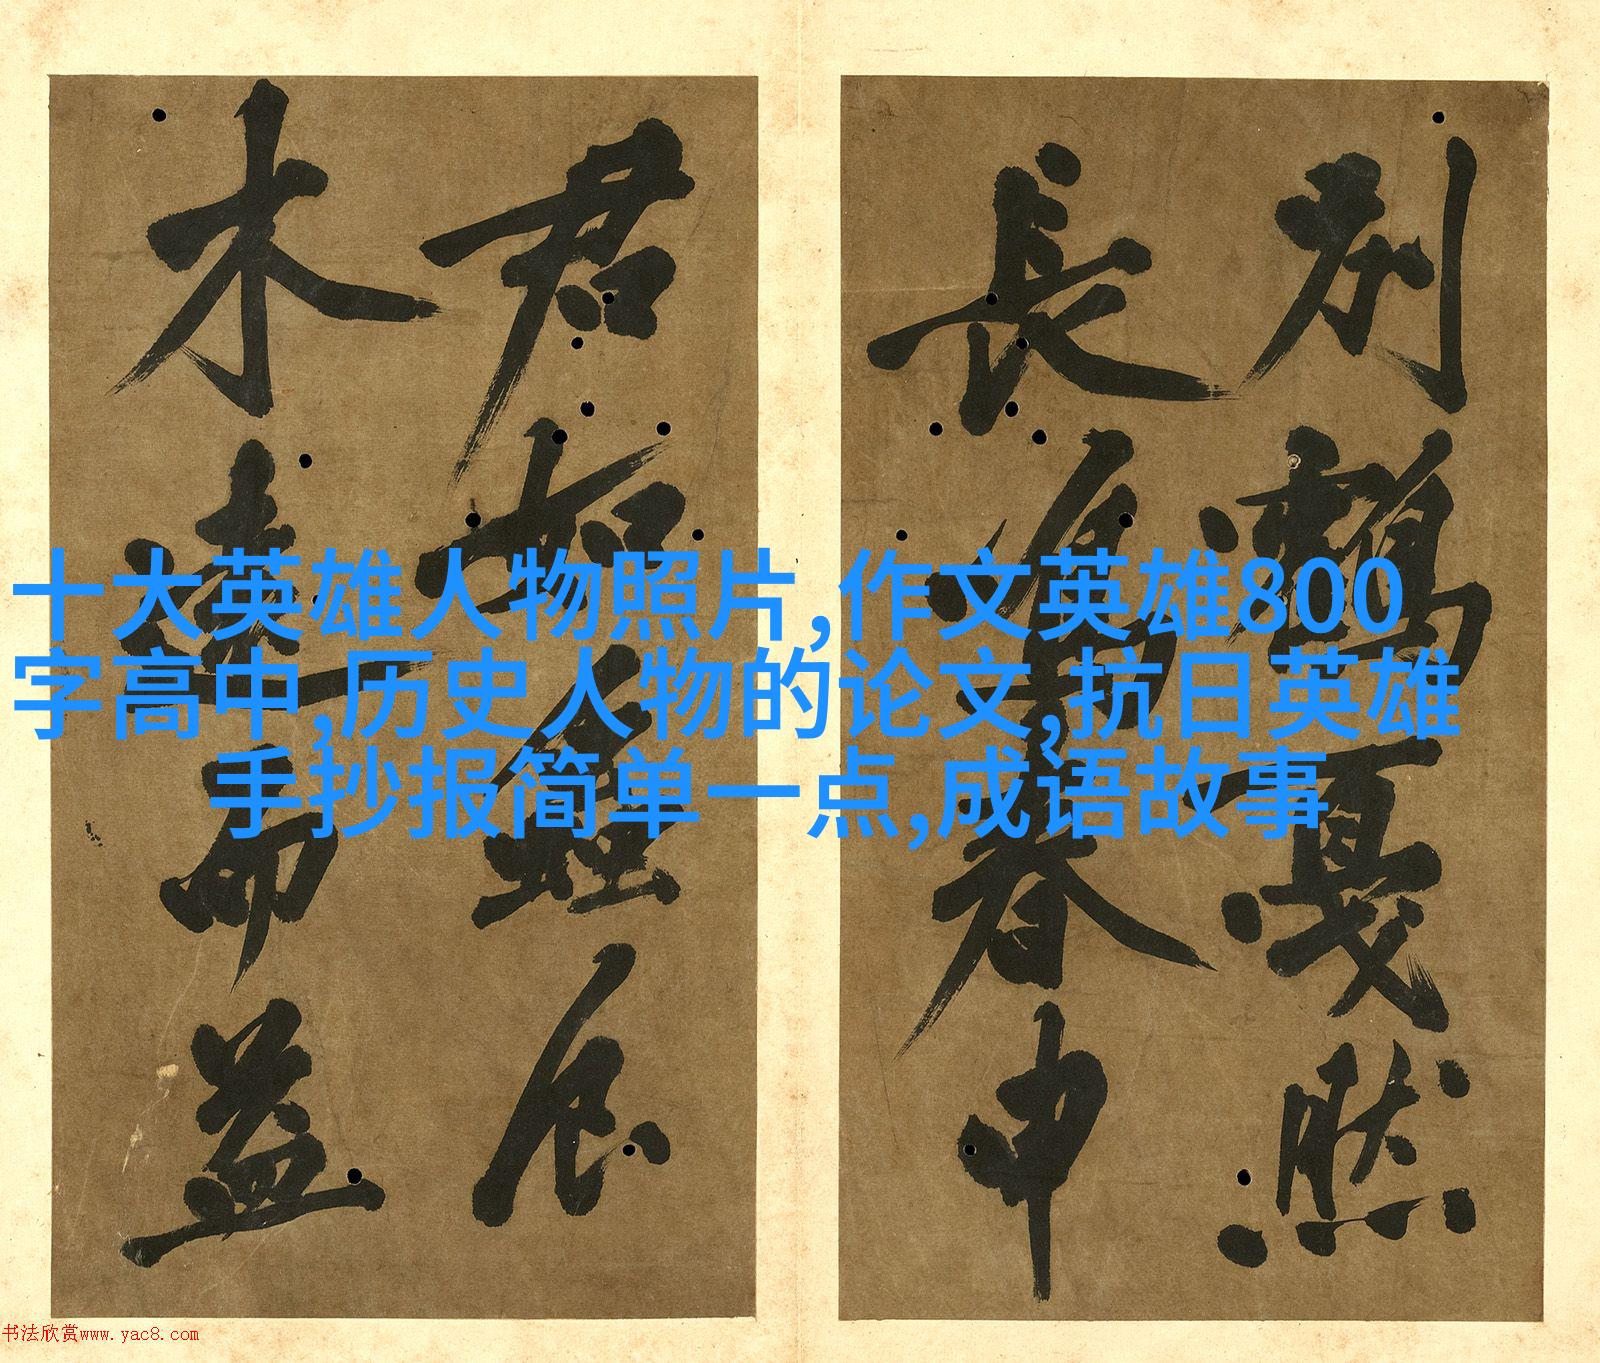 别鹤戛然
長为春申
君如蜃店
木達而益
十大英雄人物照片,作文英雄800
字高中,历史人物的论文,抗日英雄
手抄报简单一点,成语故事
书法欣赏www.yac8.com